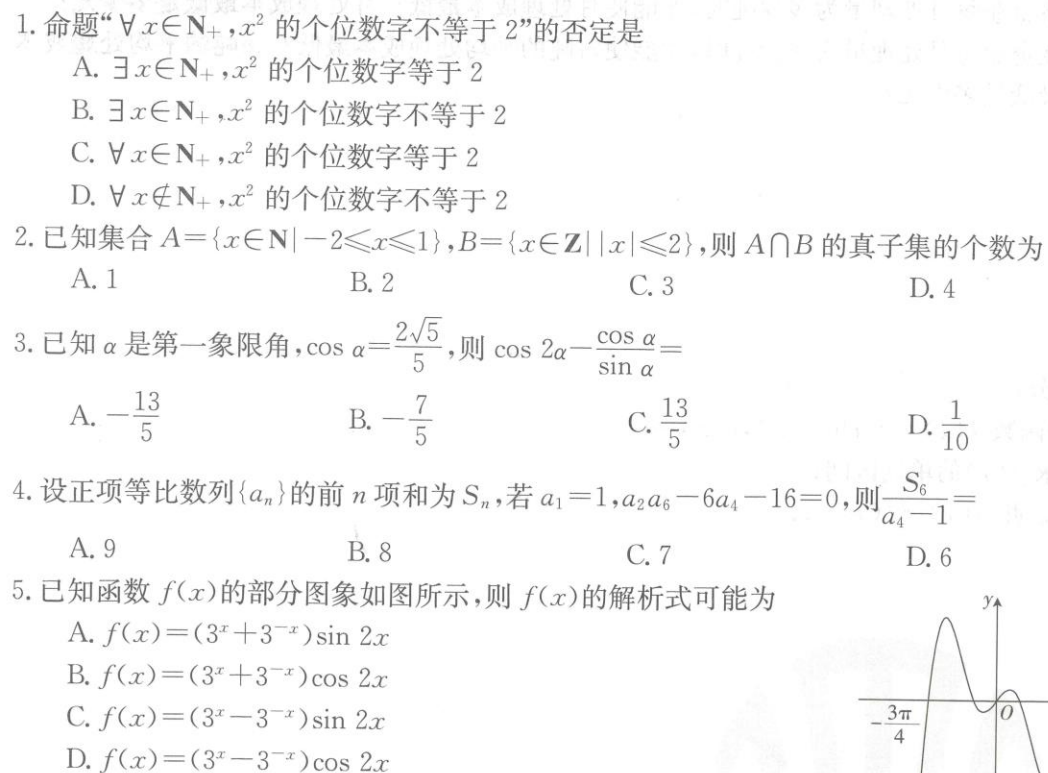 1. 命题“∀x∈N₊,x² 的个位数字不等于 2”的否定是
A. ∃x∈N₊,x² 的个位数字等于 2
B. ∃x∈N₊,x² 的个位数字不等于 2
C. ∀x∈N₊,x² 的个位数字等于 2
D. ∀x∉N₊,x² 的个位数字不等于 2
2. 已知集合 A={x∈N|-2≤x≤1},B={x∈Z||x|≤2},则 A∩B 的真子集的个数为
A. 1 B. 2 C. 3 D. 4
3. 已知 α 是第一象限角,cos α=2√5/5,则 cos 2α-cos α/sin α=
A. -13/5 B. -7/5 C. 13/5 D. 1/10
4. 设正项等比数列{aₙ}的前 n 项和为 Sₙ,若 a₁=1,a₂a₆-6a₄-16=0,则S₆/(a₄-1)=
A. 9 B. 8 C. 7 D. 6
5. 已知函数 f(x)的部分图象如图所示,则 f(x)的解析式可能为
A. f(x)=(3ˣ+3⁻ˣ)sin 2x
B. f(x)=(3ˣ+3⁻ˣ)cos 2x
C. f(x)=(3ˣ-3⁻ˣ)sin 2x
D. f(x)=(3ˣ-3⁻ˣ)cos 2x
y
-3π/4 O